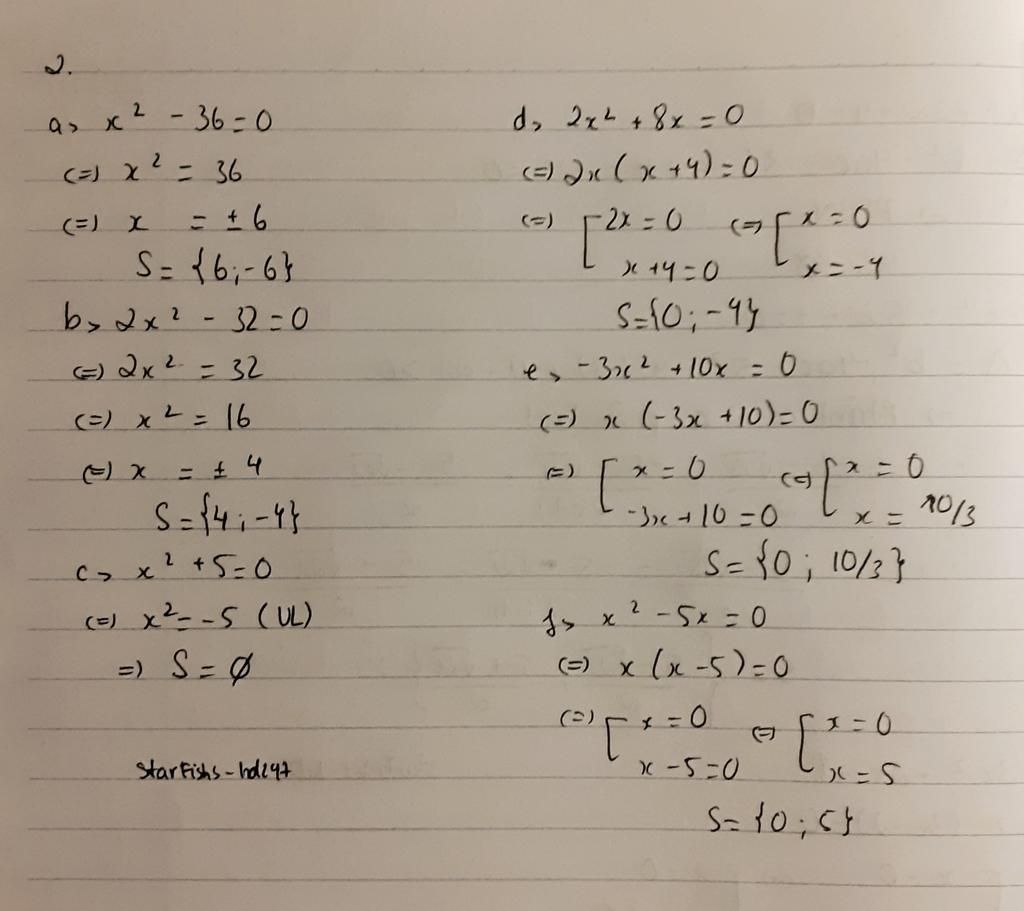 2.
a> x² - 36 = 0
(=) x² = 36
(=) x = ± 6
S = {6; -6}
b> 2x² - 32 = 0
(=) 2x² = 32
(=) x² = 16
(=) x = ± 4
S = {4; -4}
c> x² + 5 = 0
(=) x² = -5 (UL)
=) S = ∅
d> 2x² + 8x = 0
(=) 2x ( x + 4) = 0
(=) [ 2x = 0 (=) [ x = 0
x + 4 = 0 x = -4
S = {0; -4}
e> -3x² + 10x = 0
(=) x (-3x + 10) = 0
=) [ x = 0 (=) [ x = 0
-3x + 10 = 0 x = 10/3
S = {0; 10/3}
f> x² - 5x = 0
(=) x (x - 5) = 0
(=) [ x = 0 (=) [ x = 0
x - 5 = 0 x = 5
S = {0; 5}